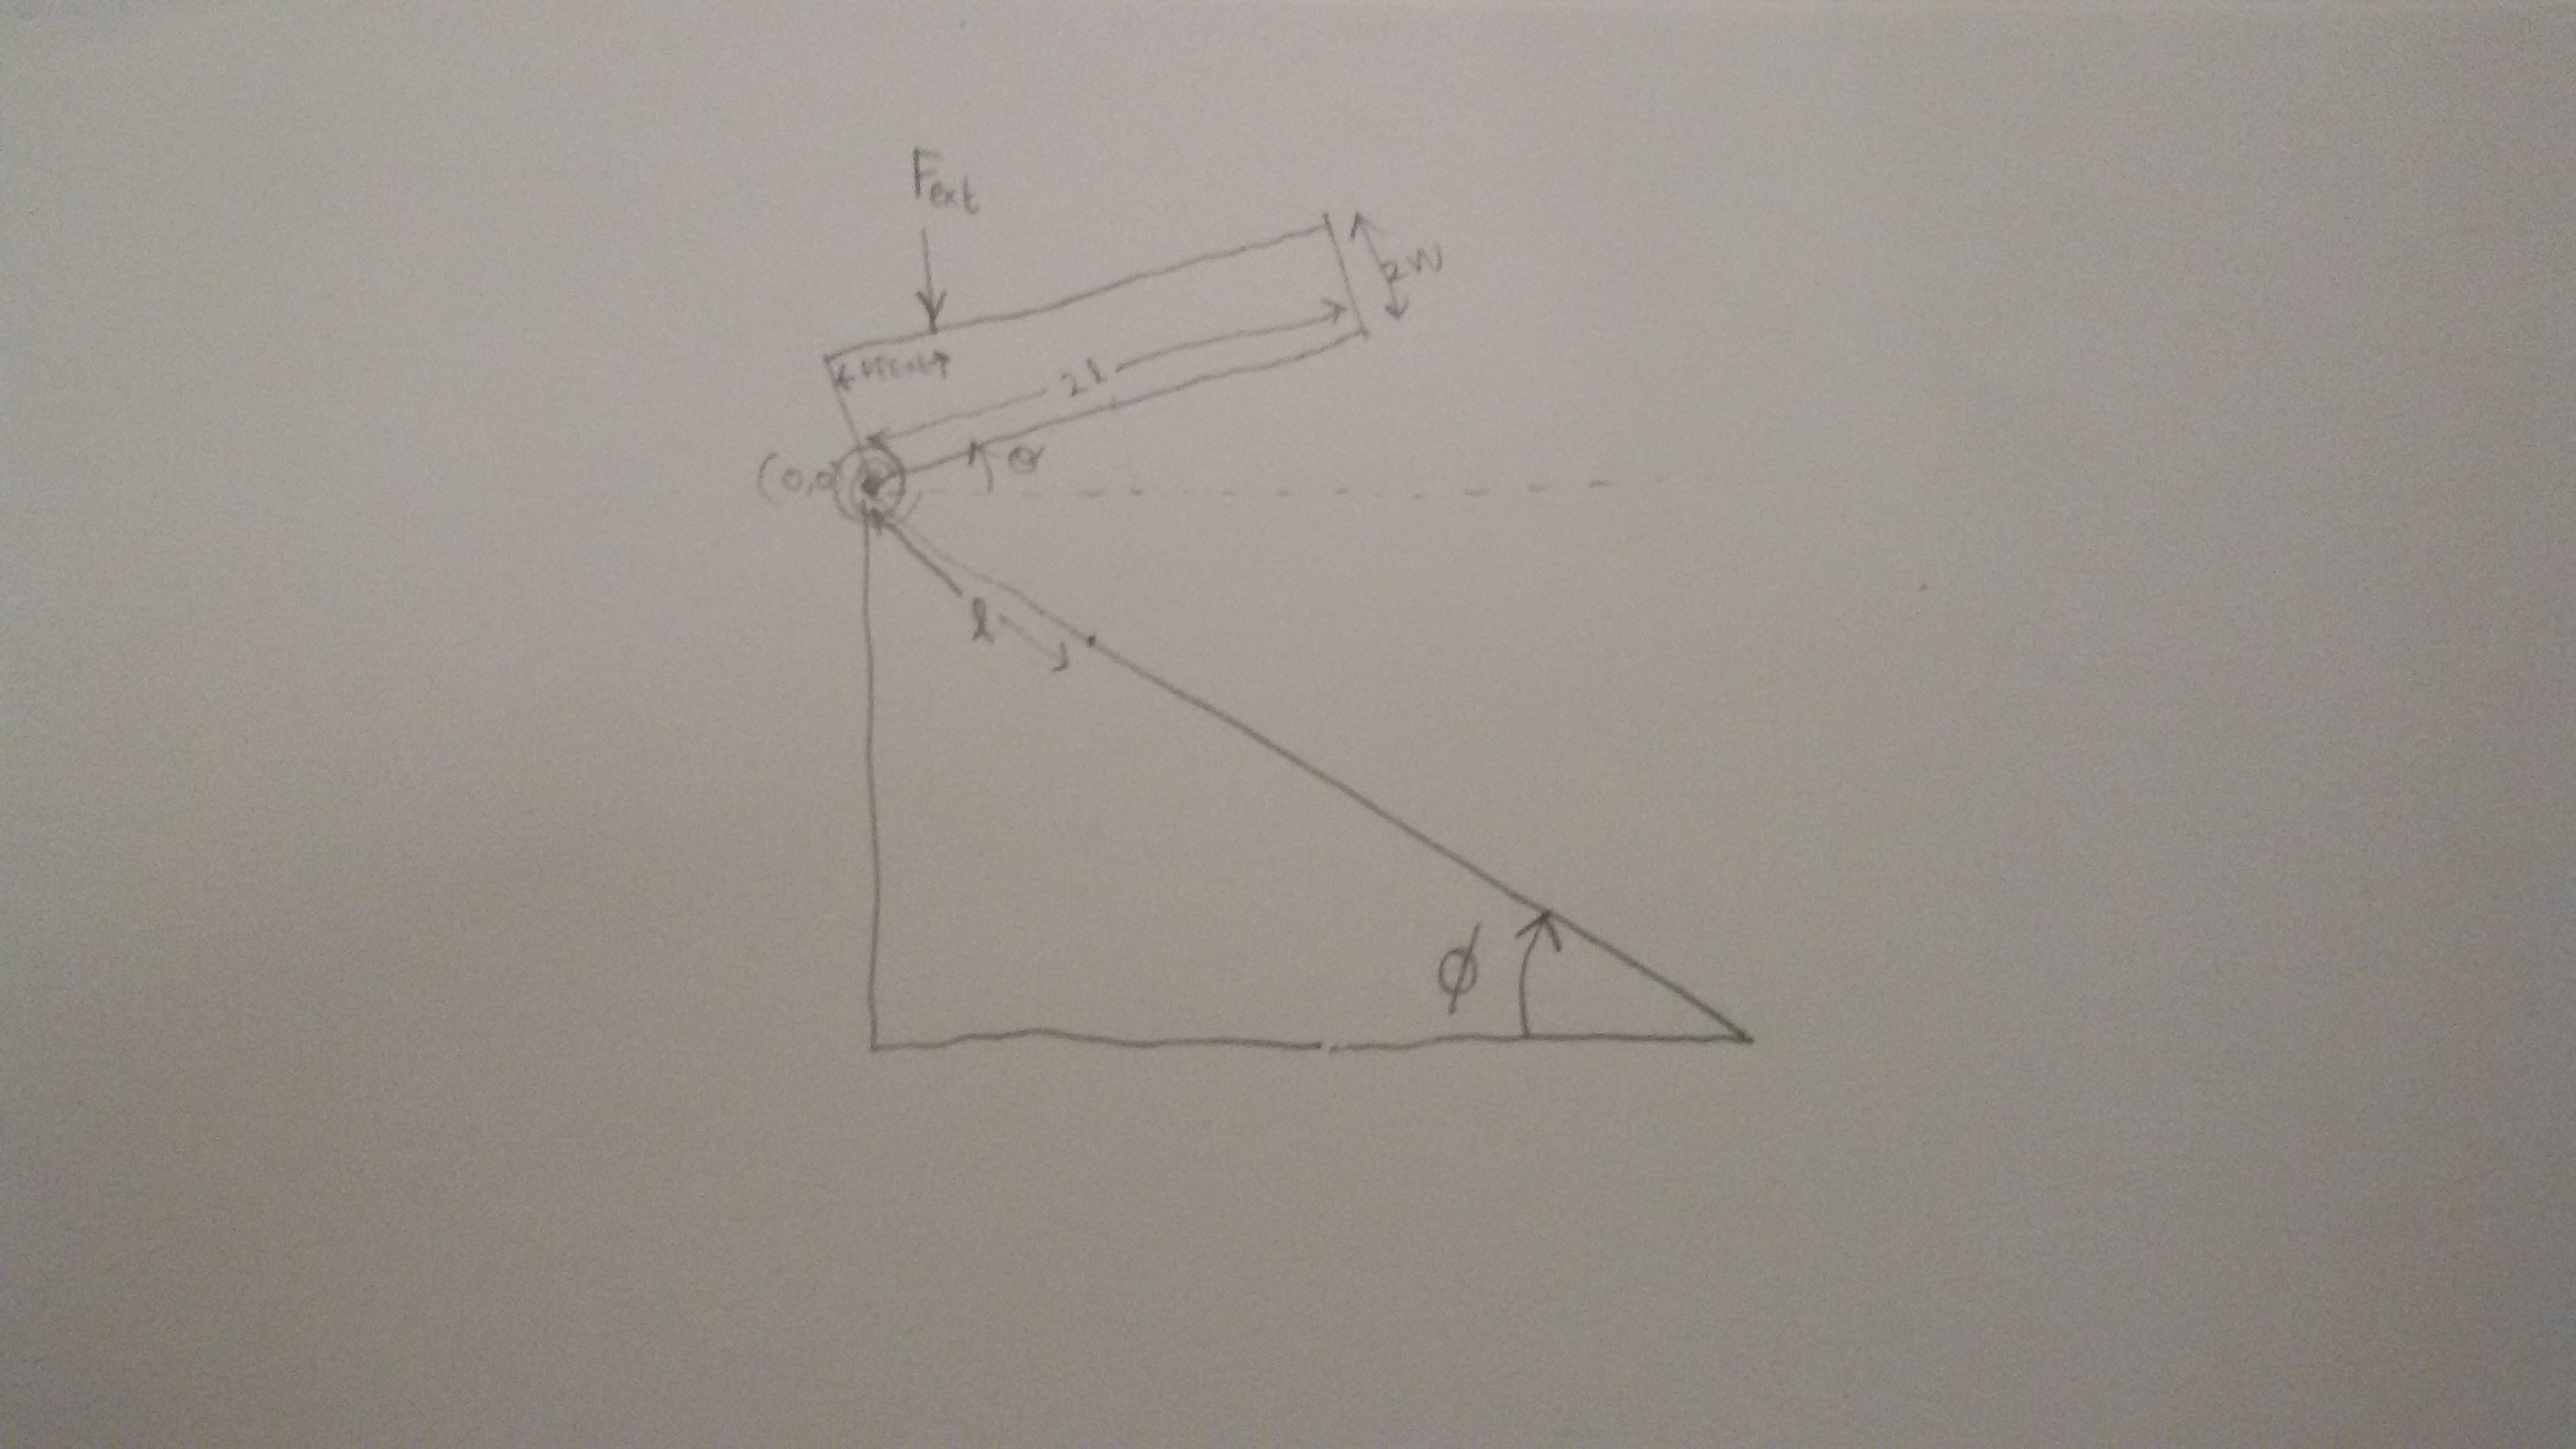 Fext
2W
2l
(0,0
θ
l
ϕ